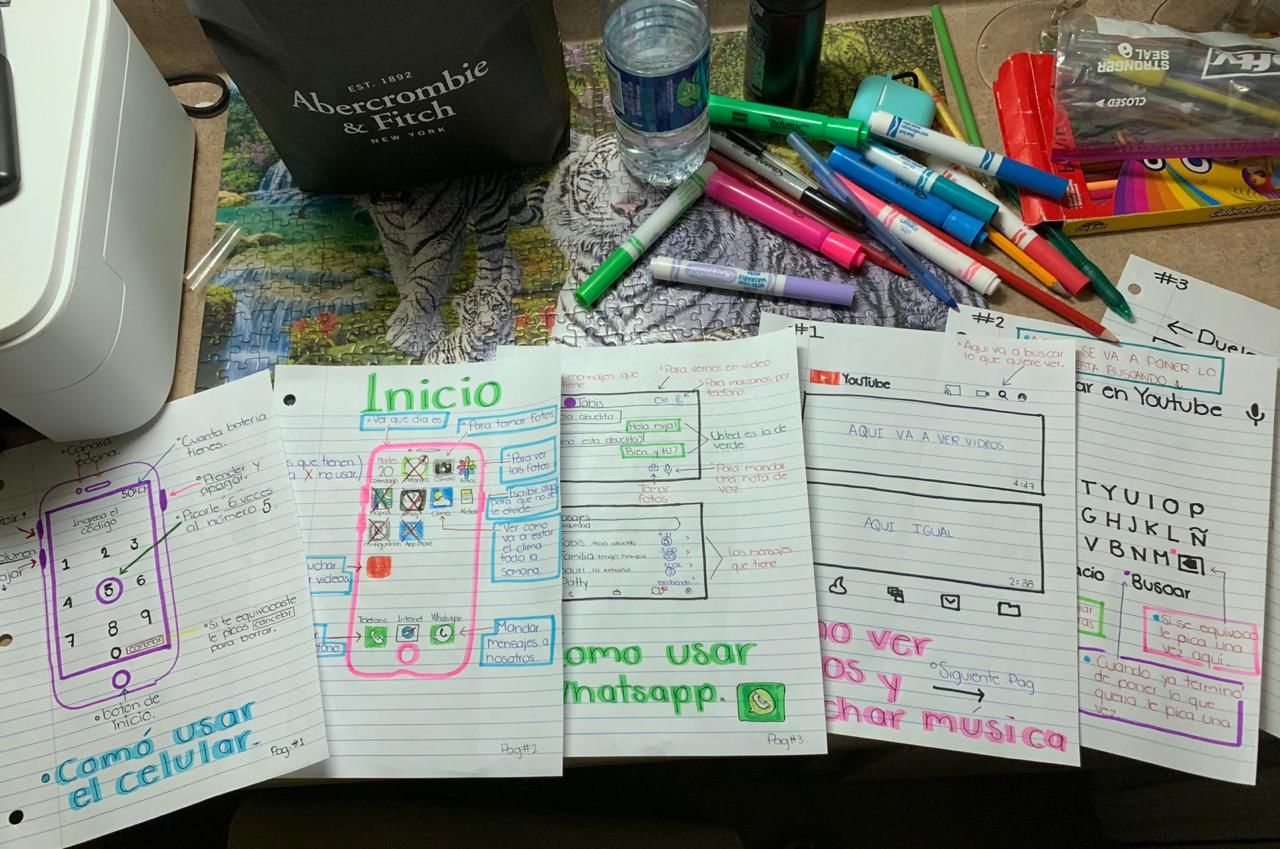 EST. 1892
Abercrombie
& Fitch
NEW YORK
STRONGER
SEAL
CLOSED
• Cuanta bateria
tienes.
• Prender y
apagar.
• Picarle 6 veces
al número 5.
Ingresa el
código
1 2 3
4 5 6
7 8 9
0 cancelar
• Si te equivocaste
le picas cancelar
para borrar.
• boton de
Inicio.
• Comó usar
el celular.
Pag.#1
Inicio
• Ver que dia es
• Para tomar fotos
s que tienen)
a X no usar.)
• Para ver
las fotos
Escribir algo
para que no se
le olvide.
Ver como
va a estar
el clima
toda la
semana.
20
Clima
Notas
configuración
uchar
r videos
Telefono
Internet
Whatsapp
fono
Mandar
mensajes a
nosotros.
Pag#2
mensajes que
tiene.
• Para vernos en video
• Para marcarnos por
telefono.
Tabis
la abuelita
Hola mija!
mo esta abuelita?
Bien y tu?
Usted es la de
verde.
Para mandar
una nota de
voz
Tomar
fotos
sajes
Tabis Hola abuelita
Familia tengo hambre
Patty
Los mensajes
que tiene.
omo usar
Whatsapp.
Pag#3
#1
• Aqui va a buscar
lo que quiere ver.
YouTube
AQUI VA A VER VIDEOS
4:47
AQUI IGUAL
2:38
mo ver
os y
char musica
• Siguiente Pag
#2
SE VA A PONER LO
ESTA BUSCANDO ↓
ar en Youtube
T Y U I O P
G H J K L Ñ
V B N M
acio
• Buscar
• Si se equivoco
le pica una
vez aqui.
• Cuando ya termino
de poner lo que
queria le pica una
vez
#3
← Duele